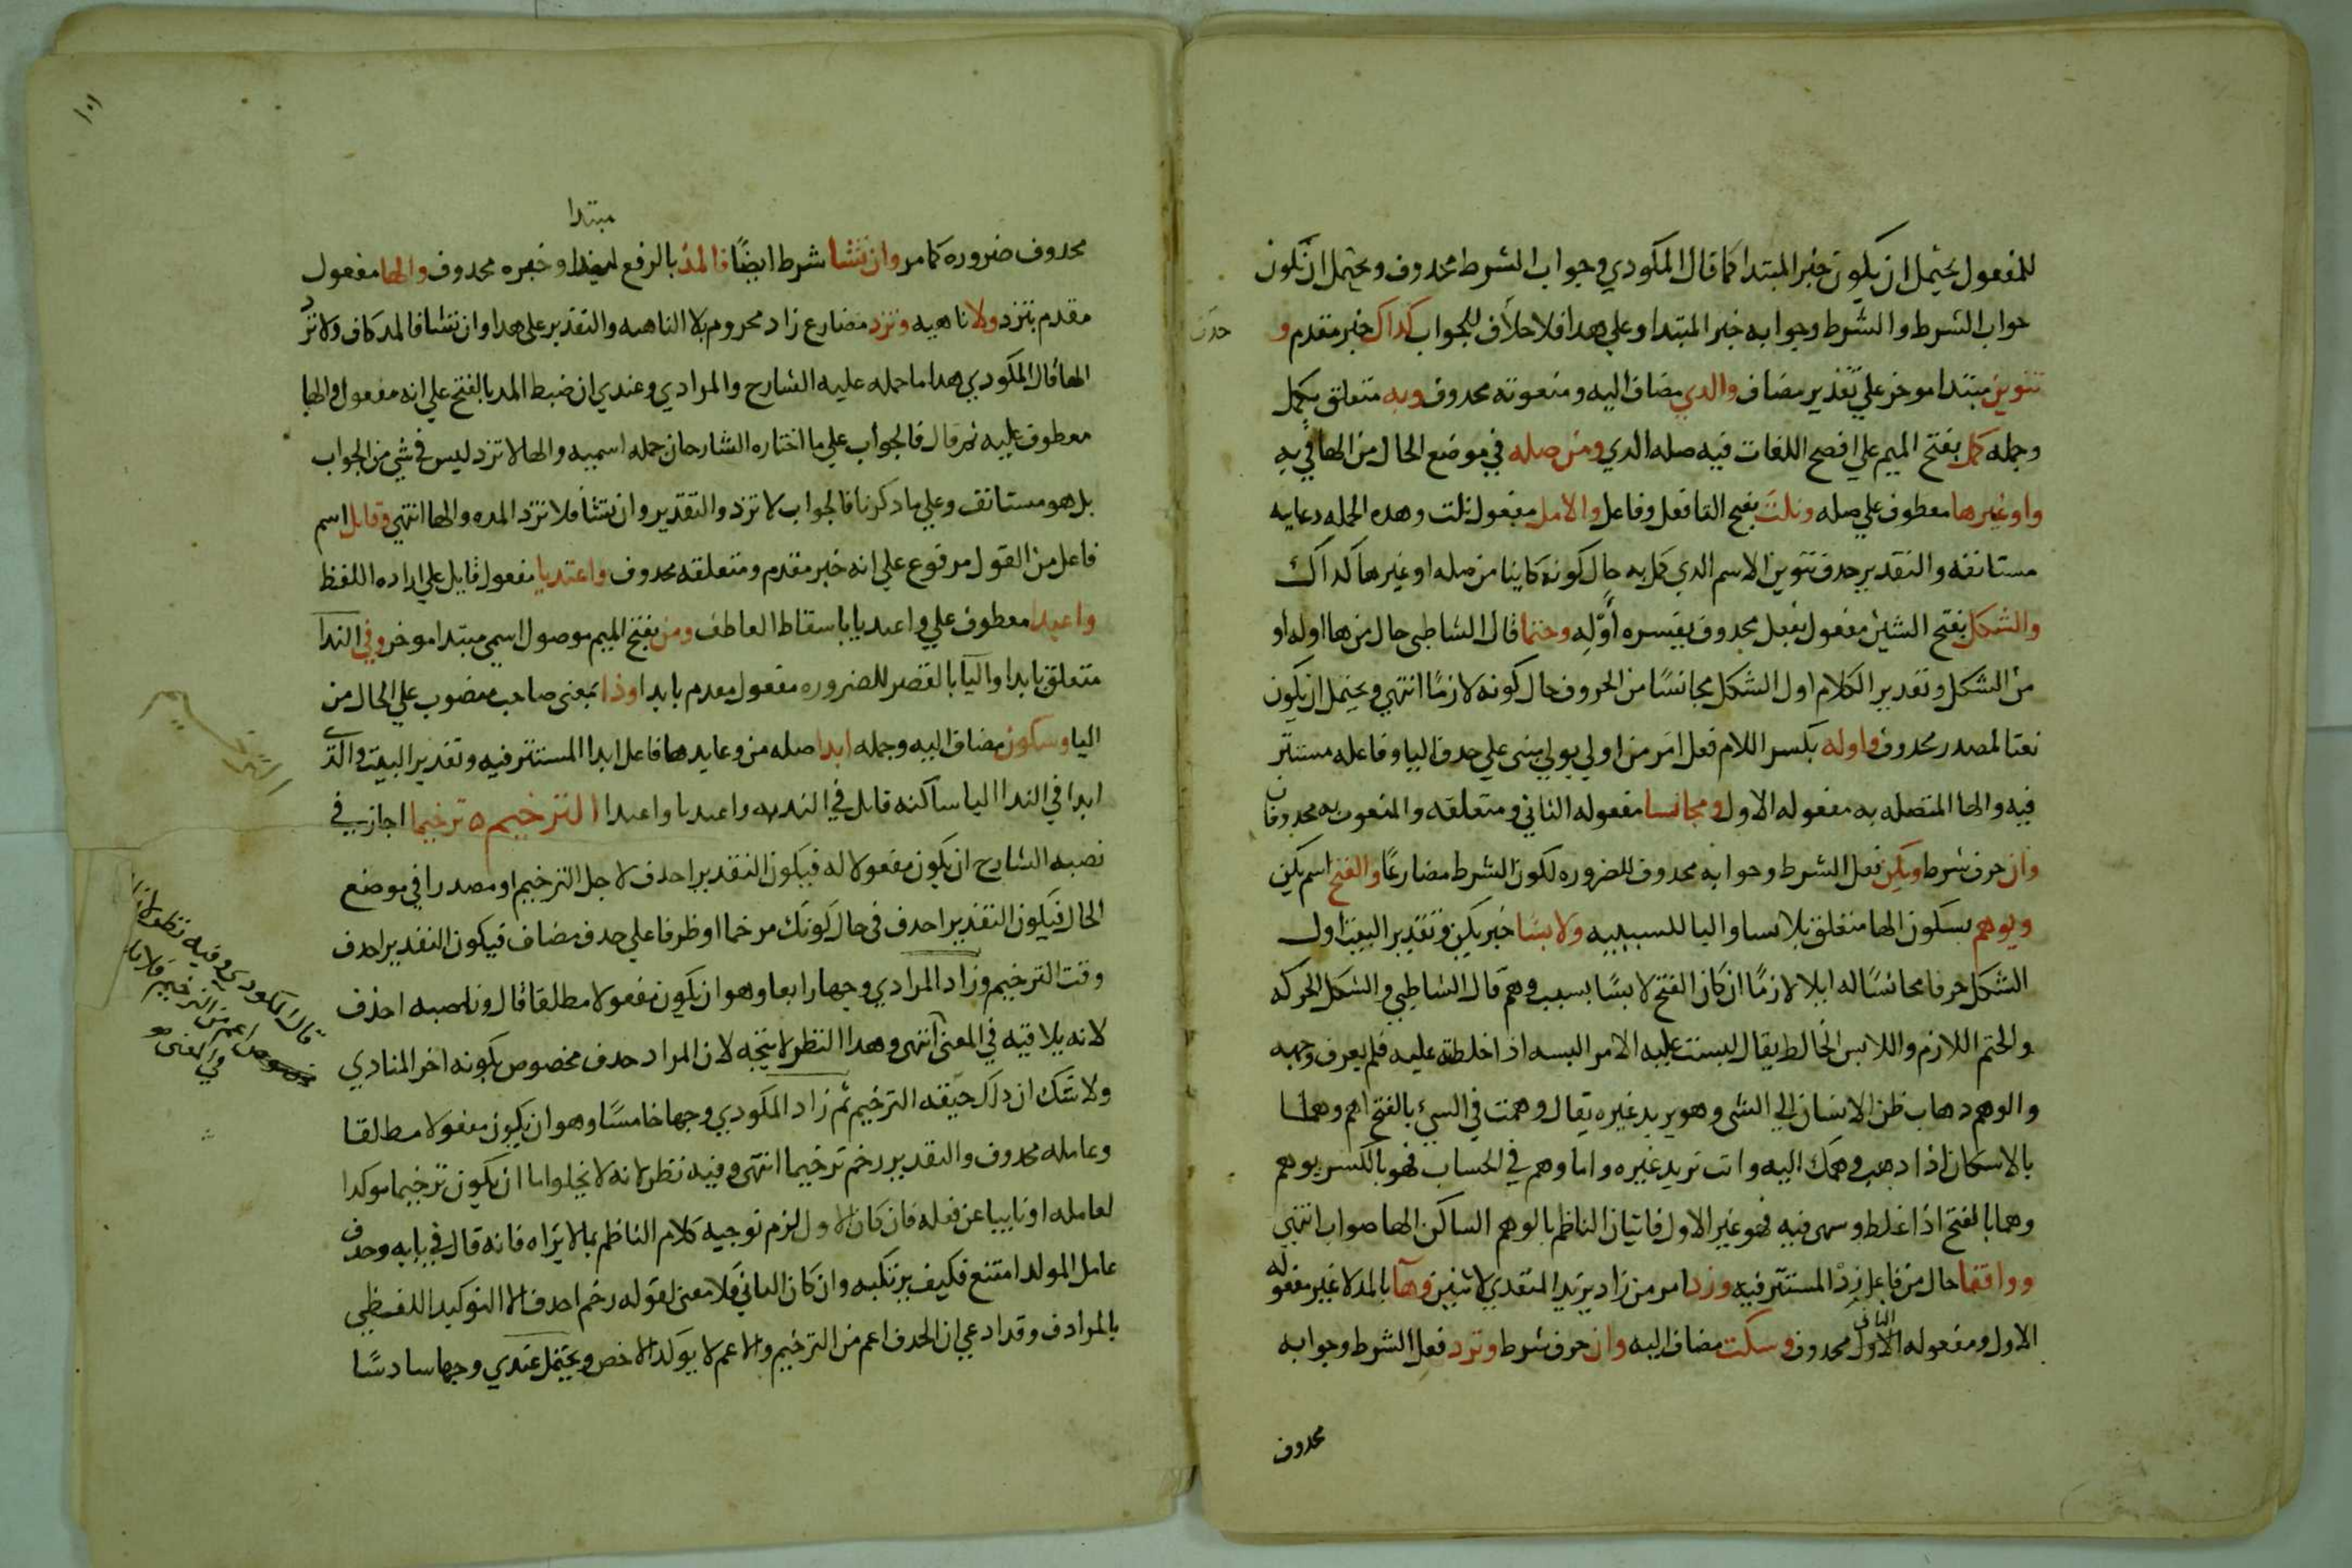 للمفعول يحتمل ان يكون خبر المبتدا كما قال المكودي وجواب الشرط محدوف ويحتمل ان تكون
جواب الشرط والشرط وجوابه خبر المبتدا وعلي هدا فلا حلاف للجواب كداك خبر مقدم و
حدف
تنوين مبتدا موخر علي تقدير مضاف والدي مضاف اليه ومنعوته محدوف وبه متعلق بكمل
وجمله كمل بفتح الميم علي افصح اللغات فيه صله الدي ومن صله في موضع الحال من الها في به
واو غيرها معطوف علي صله ونلت بفتح التا فعل وفاعل والامل مفعول نلت وهده الجمله دعايه
مستانفه والتقدير حدف تنوين الاسم الدي كمل به حال كونه كاينا من صله او غيرها كداك
والشكل بفتح الشين مفعول بفعل محدوف يفسره أوّلِه وحتما قال الشاطبي حال من ها اوله او
من الشكل وتقدير الكلام اول الشكل مجانسًا من الحروف حال كونه لازمًا انتهي ويحتمل ان يكون
نعتا لمصدر محدوف واوله بكسر اللام فعل امر من اولي يولي مبني علي حدف اليا وفاعله مستتر
فيه والها المتصله به مفعوله الاول ومجانسا مفعوله الثاني ومتعلقه والمنعوت به محدوفان
وان حرف شرط ويكن فعل الشرط وجوابه محدوف للضروره لكون الشرط مضارعًا والفتح اسم يكن
وبوهم بسكون الها متعلق بلابسا واليا للسببيه ولابسًا خبر يكن وتقدير البيت اول
الشكل حرفا مجانسًا له ايلا لازمًا ان كان الفتح لابسًا بسبب وهم قال الشاطبي والشكل الحركه
والحتم اللازم واللابس الخالط يقال لبست عليه الامر البسه اذا خلطته عليه فلم يعرف وجهه
والوهم دهاب ظن الانسان الي الشي وهو يريد غيره يقال وهمت في الشيء بالفتح اهم وهما
بالاسكان اذا دهب وهمك اليه وانت تريد غيره واما وهم في الحساب فهو بالكسر يوهم
وهما بالفتح اذا غلط وسهي فيه فهو غير الاول فاتيان الناظم بالوهم الساكن الها صواب انتهي
وواقفا حال من فاعل زِدْ المستتر فيه وزد امر من زاد يزيد المتعدي لاثنين وهآ بالمد لا غير مفعوله
الاول ومفعوله الثاني محدوف وسكت مضاف اليه وان حرف شرط وترد فعل الشرط وجوابه
محدوف
١٠١
مبتدا
محدوف ضروره كما مر وان تشا شرط ايضًا فالمدّ بالرفع مبتدا وخبره محدوف والها مفعول
مقدم بتزد ولا ناهيه وتزد مضارع زاد مجزوم بلا الناهيه والتقدير علي هدا وان تشا فالمد كاف ولا تزد
الها قال المكودي هدا ما حمله عليه الشارح والمرادي وعندي ان ضبط المد بالفتح علي انه مفعول والها
معطوف عليه ثم قال فالجواب علي ما اختاره الشارحان جمله اسميه والها لا تزد ليس في شي من الجواب
بل هو مستانف وعلي ما دكرنا فالجواب لا تزد والتقدير وان تشا فلا تزد المده والها انتهي وقايل اسم
فاعل من القول مرفوع علي انه خبر مقدم ومتعلقه محدوف واعبديا مفعول قايل علي اراده اللفظ
واعبدا معطوف علي واعبديا باسقاط العاطف ومن بفتح الميم موصول اسمي مبتدا موخر وفي الندا
متعلق بابدا واليا بالقصر للضروره مفعول مقدم بابدا وذا بمعني صاحب منصوب علي الحال من
اليا وسكون مضاف اليه وجمله ابدا صله من وعايدها فاعل ابدا المستتر فيه وتقدير البيت والدي
ابدا في الندا اليا ساكنه قايل في الندبه واعبديا واعبدا الترخيم ه ترخيما اجاز في
نصبه الشارح ان يكون مفعولا له فيكون التقدير احدف لاجل الترخيم او مصدرا في موضع
الحال فيكون التقدير احدف في حال كونك مرخما او ظرفا علي حدف مضاف فيكون التقدير احدف
وقت الترخيم وزاد المرادي وجها رابعا وهو ان يكون مفعولا مطلقا قال وناصبه احذف
لانه يلاقيه في المعني انتهي وهدا النظر لا يتجه لان المراد حدف مخصوص بكونه اخر المنادي
ولا شك ان دلك حقيقه الترخيم ثم زاد المكودي وجها خامسًا وهو ان يكون مفعولا مطلقا
وعامله محدوف والتقدير رخم ترخيما انتهي وفيه نظر لانه لا يخلو اما ان يكون ترخيما موكدا
لعامله او نايبا عن فعله فان كان الاول لزم توجيه كلام الناظم بما لا يراه فانه قال في بابه وحدف
عامل الموكد امتنع فكيف يرتكبه وان كان الثاني فلا معني لقوله رخم احدف الا التوكيد اللفظي
بالمرادف وقد ادعي ان الحدف اعم من الترخيم والاعم لا يوكد الاخص ويحتمل عندي وجها سادسًا
قال المكودي وفيه نظر لان
اعم من الترخيم فلا
في المعني